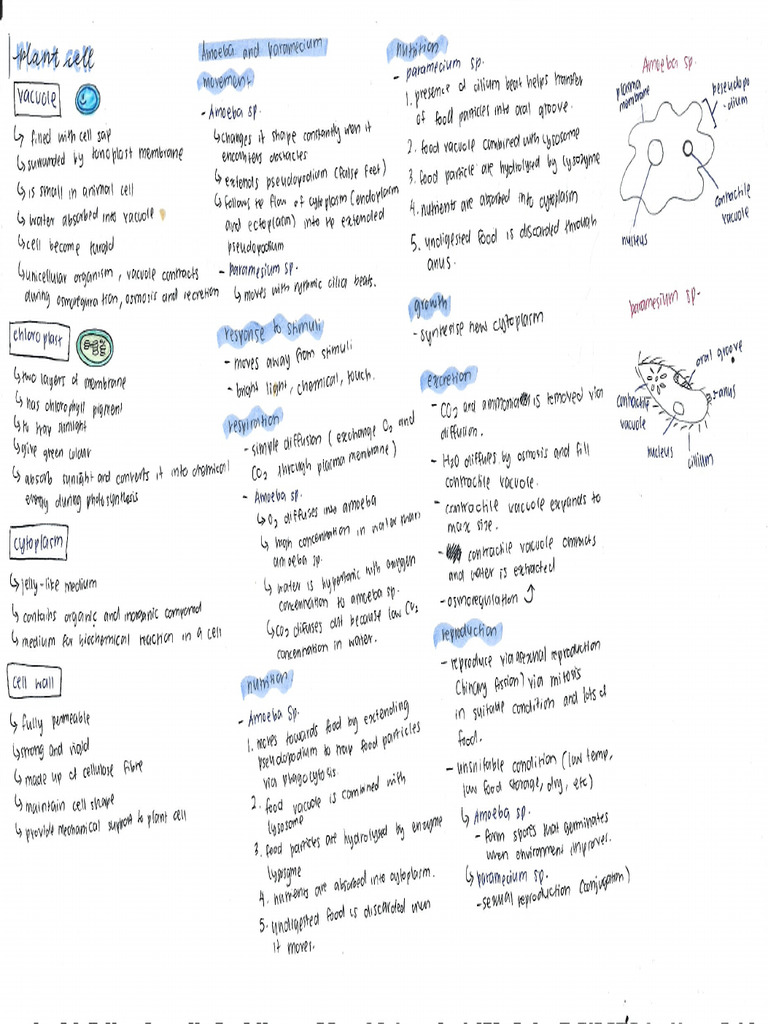 plant cell
vacuole
↳ filled with cell sap
↳ surrunded by tonoplast membrane
↳ is small in animal cell
↳ water absorbed into vacuole
↳ cell become turgid
↳ unicellular organism, vacuole contracts
during osmoregulation, osmosis and excretion
chloroplast
↳ two layers of membrane
↳ has chlorophyll pigment
↳ to trap sunlight
↳ give green colour
↳ absorb sunlight and converts it into chemical
energy during photosynthesis
cytoplasm
↳ jelly-like medium
↳ contains organic and inorganic compound
↳ medium for biochemical reaction in a cell
cell wall
↳ fully permeable
↳ strong and rigid
↳ made up of cellulose fibre
↳ maintain cell shape
↳ provide mechanical support to plant cell
Amoeba and paramecium
movement
- Amoeba sp.
↳ changes it shape constantly when it
encounters obstacles
↳ extends pseudopodium (false feet)
↳ follows the flow of cytoplasm (endoplasm
and ectoplasm) into the extended
pseudopodium
- paramesium sp.
↳ moves with rythmic cilia beats.
response to stimuli
- moves away from stimuli
- bright light, chemical, touch.
respiration
- simple diffusion (exchange O2 and
CO2 through plasma membrane)
- Amoeba sp.
↳ O2 diffuses into amoeba
↳ high concentration in water than
amoeba sp.
↳ water is hypertonic with oxygen
concentration to amoeba sp.
↳ CO2 diffuses out because low CO2
concentration in water.
nutrition
- Amoeba sp.
1. moves towards food by extending
pseudopodium to trap food particles
via phagocytosis.
2. food vacuole is combined with
lysosome
3. food particles are hydrolysed by enzyme
lysozyme
4. nutrients are absorbed into cytoplasm.
5. undigested food is discarded when
it moves.
nutrition
- paramecium sp.
1. presence of cilium beat helps transfer
of food particles into oral groove.
2. food vacuole combined with lysosome
3. food particle are hydrolysed by lysozyme
4. nutrients are absorbed into cytoplasm
5. undigested food is discarded through
anus.
growth
- synthesise new cytoplasm
excretion
- CO2 and ammonia is removed via
diffusion.
- H2O diffuses by osmosis and fill
contractile vacuole.
- contractile vacuole expands to
max size.
- contractile vacuole contracts
and water is extracted
- osmoregulation
reproduction
- reproduce via asexual reproduction
(binary fission) via mitosis
in suitable condition and lots of
food.
- unsuitable condition (low temp,
low food storage, dry, etc)
↳ Amoeba sp.
- form spores that germinates
when environment improves.
↳ paramecium sp.
- sexual reproduction (conjugation)
Amoeba sp.
plasma
membrane
pseudopo
-dium
contractile
vacuole
nucleus
paramesium sp.
oral groove
anus
contractile
vacuole
nucleus
cilium